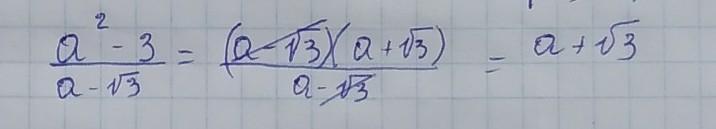 (a² - 3)/(a - √3) = ((a - √3)(a + √3))/(a - √3) = a + √3